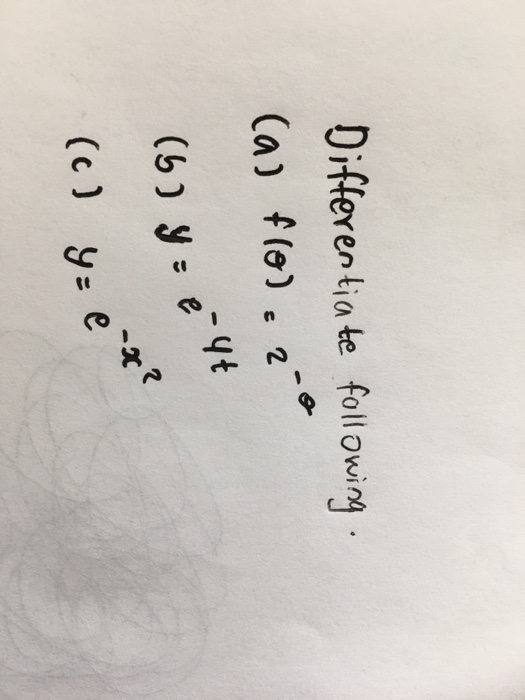 Differentiate following.
(a) f(θ) = 2^-θ
(b) y = e^-4t
(c) y = e^-x²